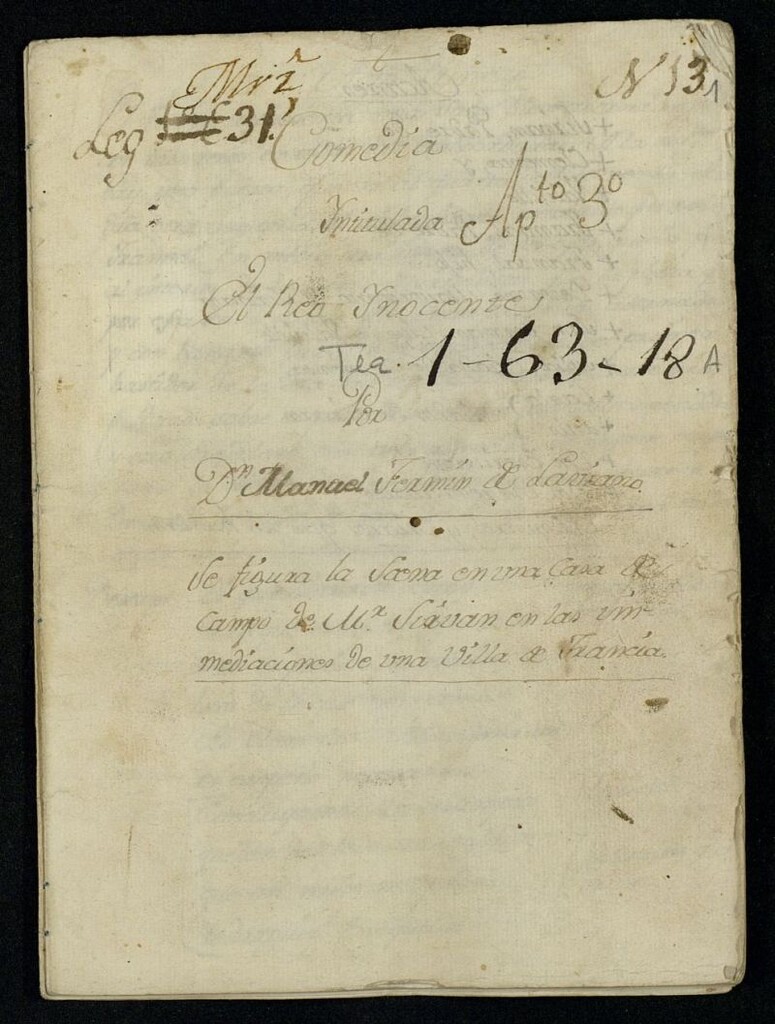 Mrz
N 13
1
Leg 31.
Comedia
Intitulada
Apto 3o
El Reo Inocente
Tea. 1-63-18 A
Por
Dn Manuel Fermin de Laviano.
Se figura la Scena en una Casa de
Campo de Mr. Sirvan en las ym
mediaciones de una Villa de Francia.